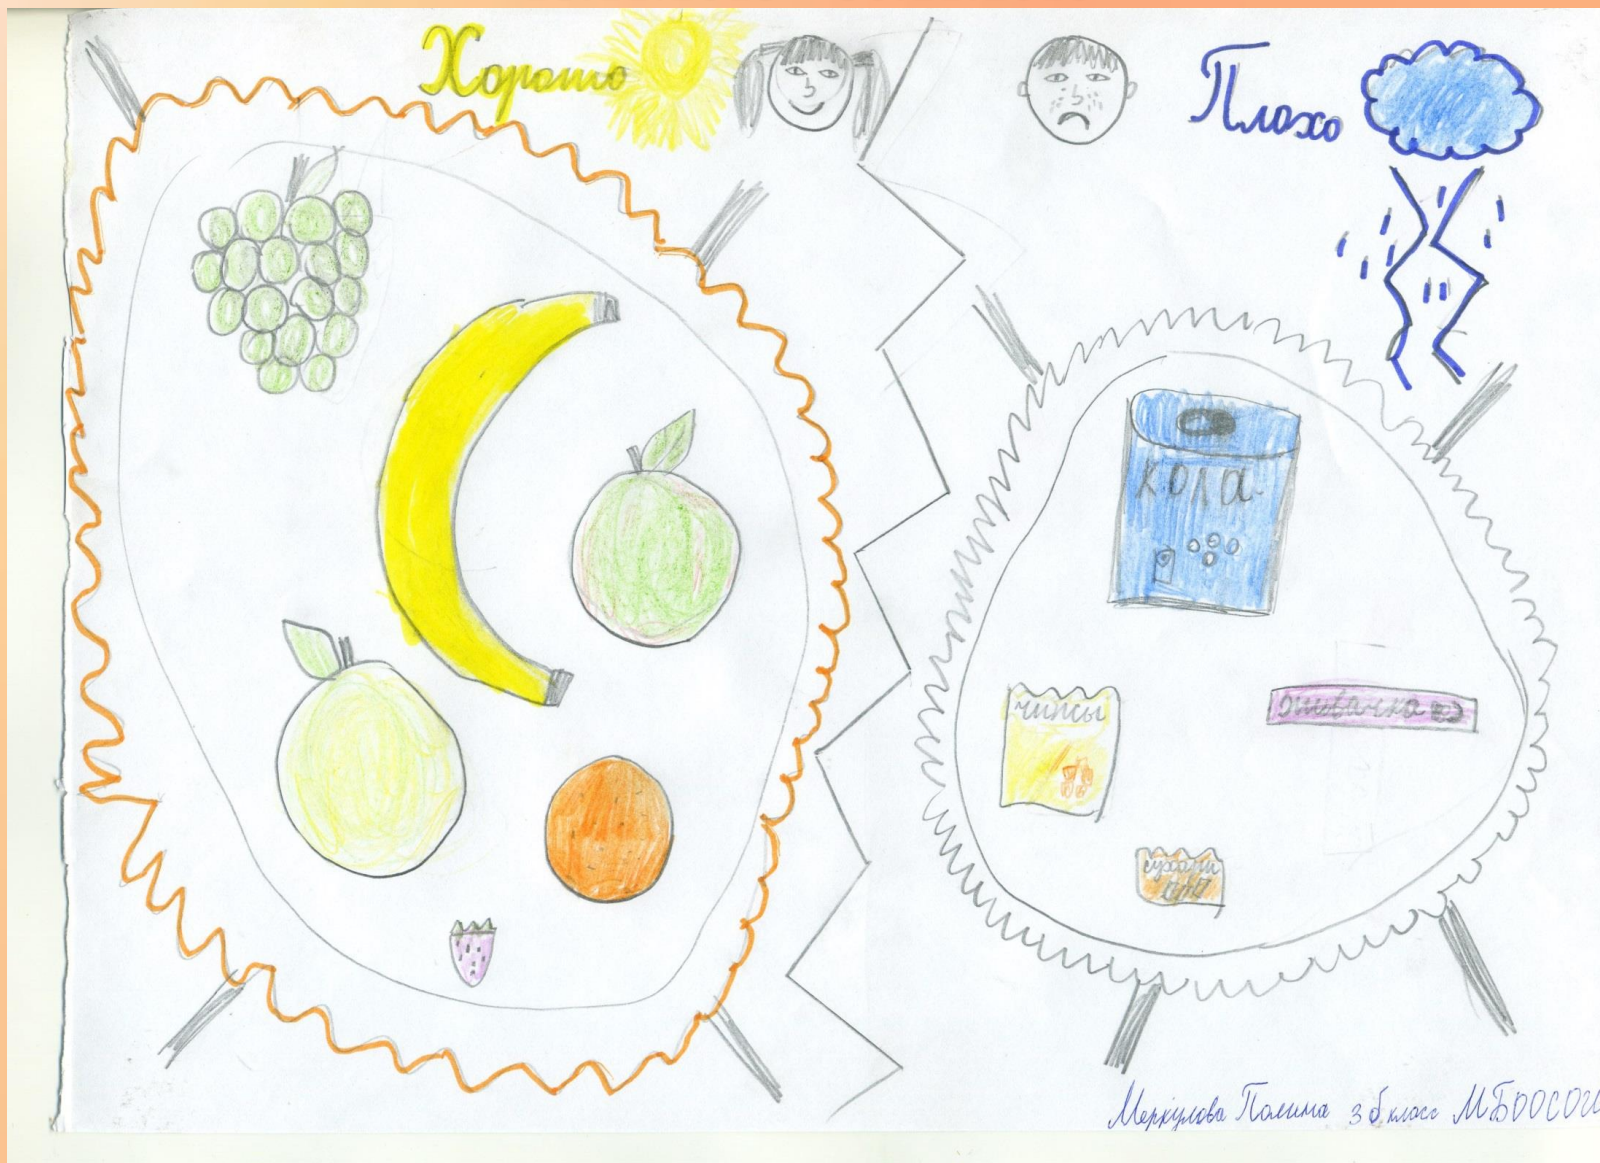 Хорошо
Плохо
кола
чипсы
живачка
сухари
Меркулова Полина 3 б класс МБООСОШ